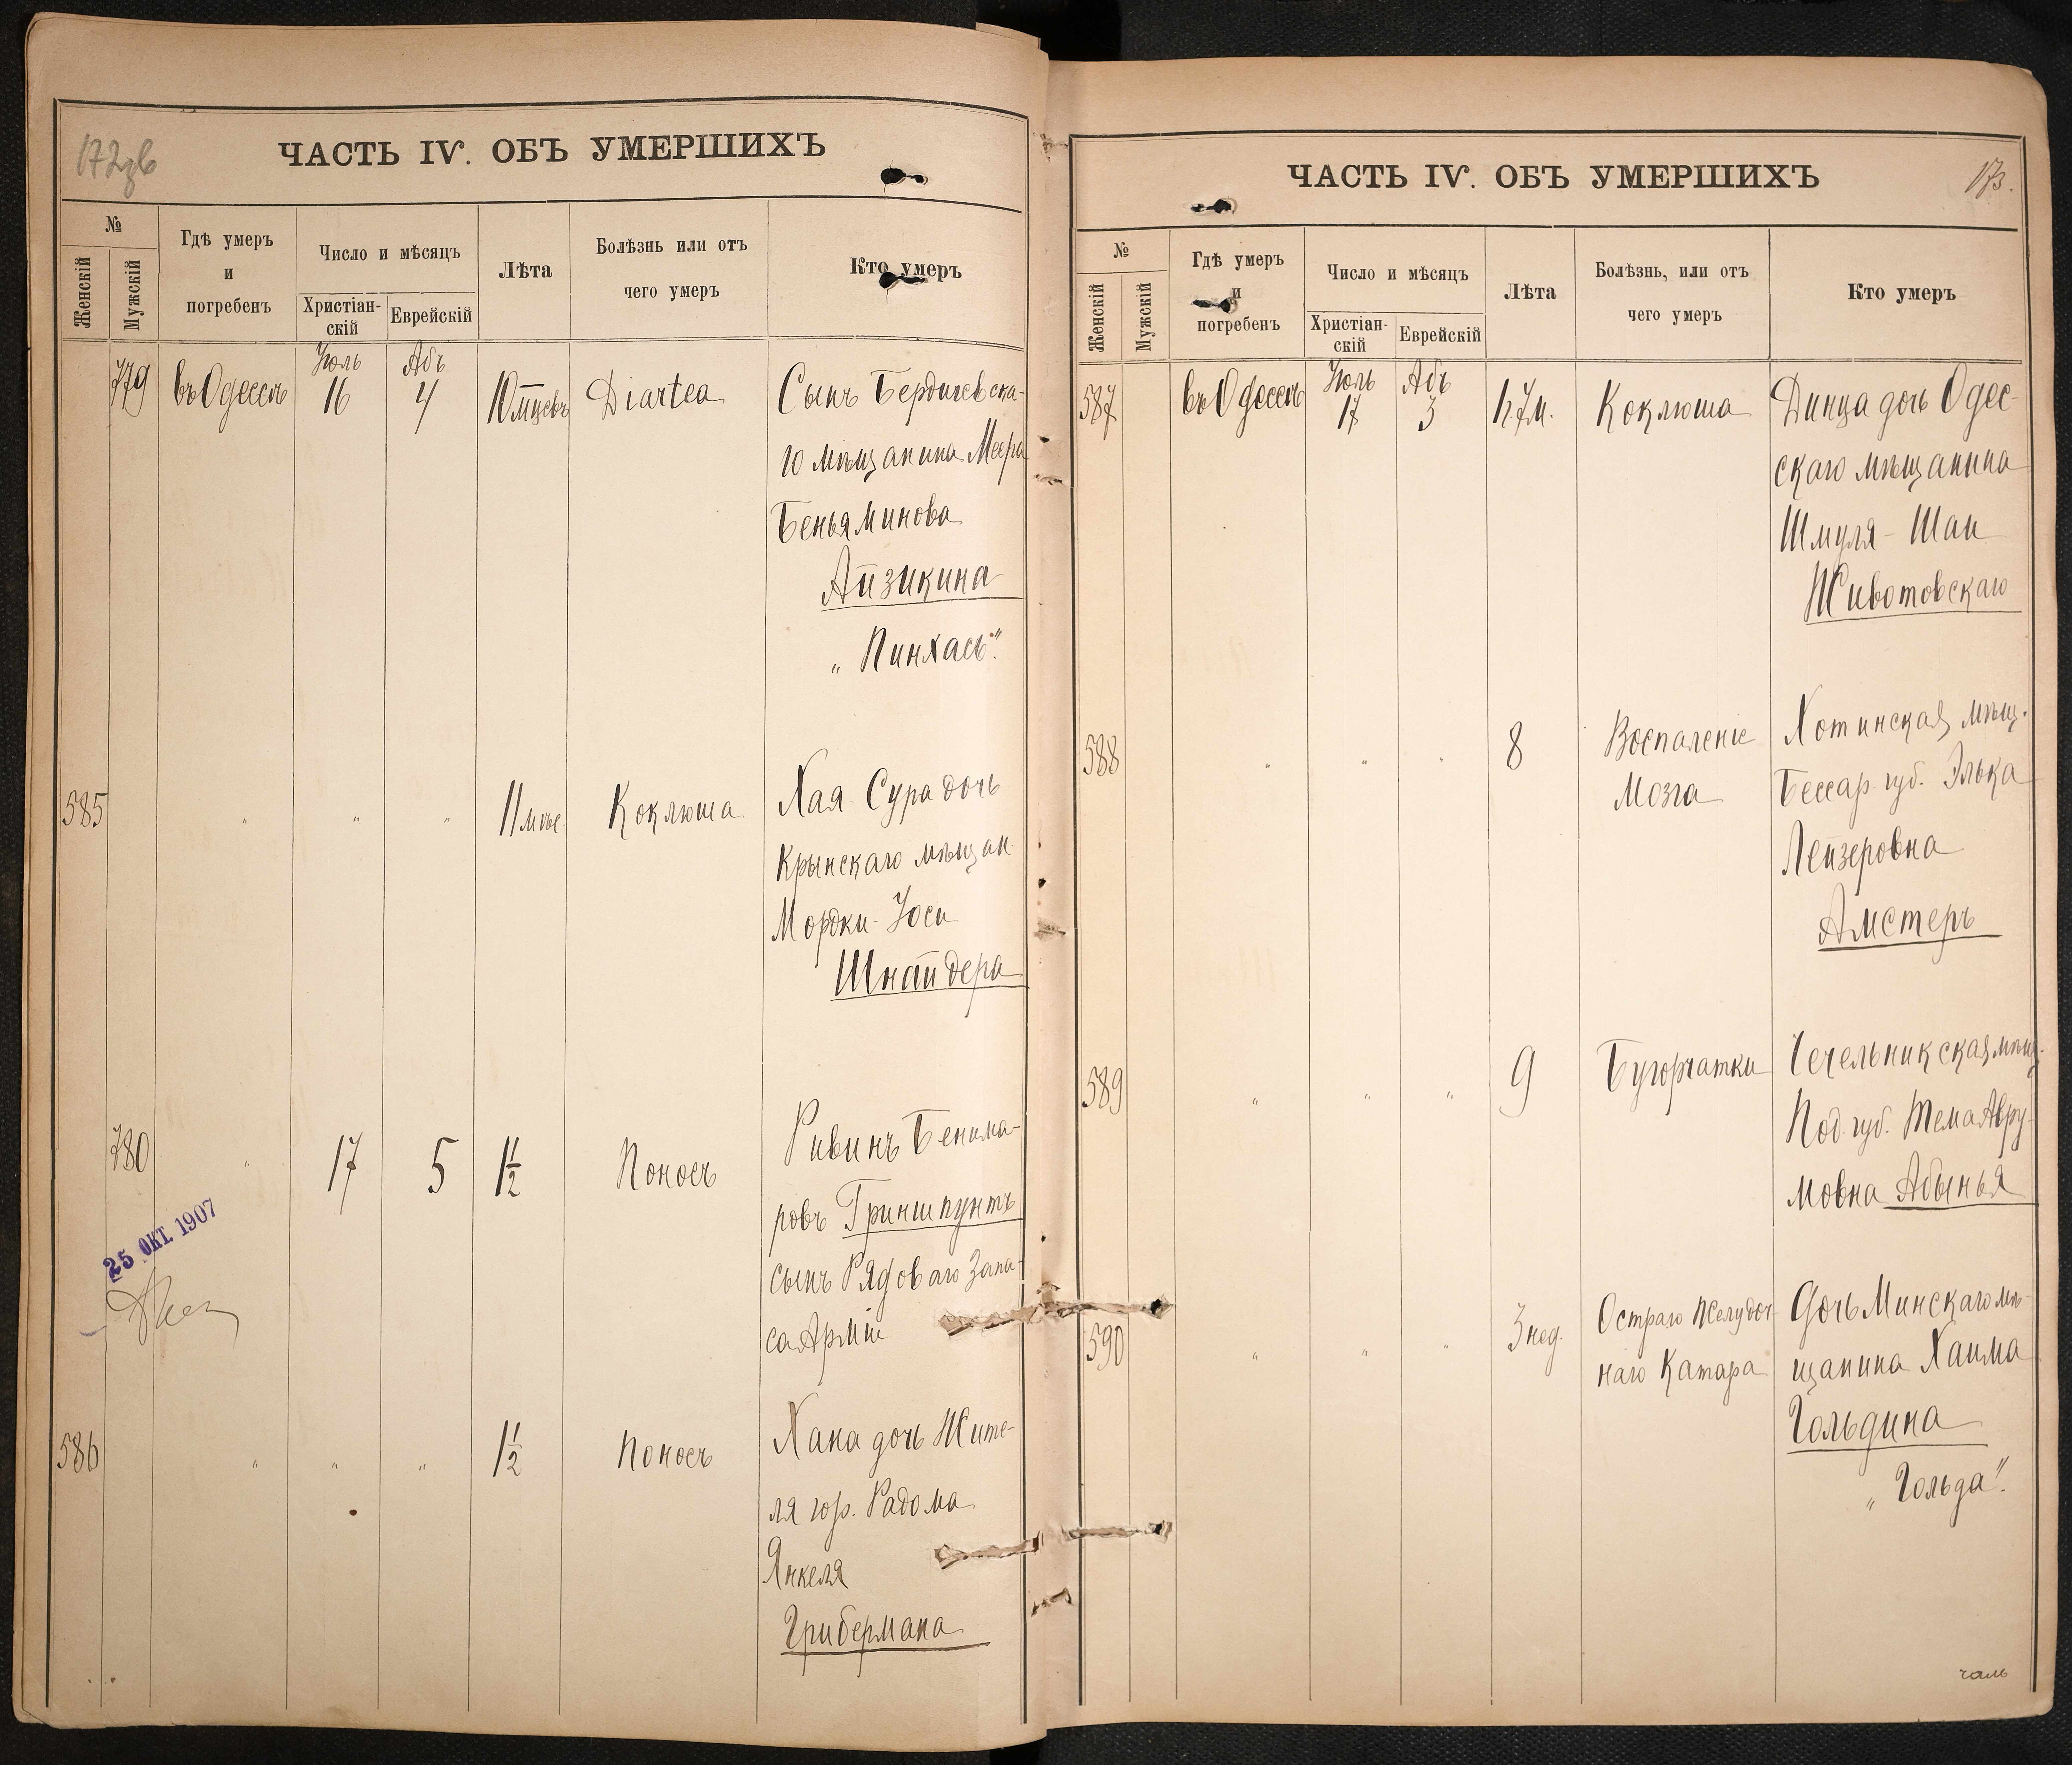 172зв
ЧАСТЬ IV. ОБЪ УМЕРШИХЪ
№
Женскій
Мужскій
Гдѣ умеръ
и
погребенъ
Число и мѣсяцъ
Христіан-
скій
Еврейскій
Лѣта
Болѣзнь или отъ
чего умеръ
Кто умеръ
779
въ Одессѣ
Іюль
16
Абъ
4
10 мцевъ
Diartea
Сынъ Бердичевска-
го мѣщанина Меера
Беньяминова
Айзикина
„Пинхасъ".
585
"
"
"
11 мѣс.
Коклюша
Хая-Сура дочь
Крынскаго мѣщан.
Мордки-Іоси
Шнайдера
780
"
17
5
1 1/2
Поносъ
Ривинъ Бенима-
ровъ Гриншпунтъ
сынъ Рядоваго Запа-
са Арміи
25 ОКТ. 1907
586
"
"
"
1 1/2
Поносъ
Хана дочь Жите-
ля гор. Радома
Янкеля
Грибермана
173.
ЧАСТЬ IV. ОБЪ УМЕРШИХЪ
№
Женскій
Мужскій
Гдѣ умеръ
и
погребенъ
Число и мѣсяцъ
Христіан-
скій
Еврейскій
Лѣта
Болѣзнь, или отъ
чего умеръ
Кто умеръ
587
въ Одессѣ
Іюль
17
Абъ
5
1 г. 7 м.
Коклюша
Динца дочь Одес-
скаго мѣщанина
Шмуля-Шаи
Животовскаго
588
"
"
"
8
Воспаленіе
Мозга
Хотинская мѣщ.
Бессар. губ. Элька
Лейзеровна
Амстеръ
589
"
"
"
9
Бугорчатки
Чечельникская мѣщ.
Под. губ. Тема Авру-
мовна Абынья
590
"
"
"
3 нед.
Остраго Желудоч-
наго Катара
Дочь Минскаго мѣ-
щанина Хаима
Гольдина
„Гольда".